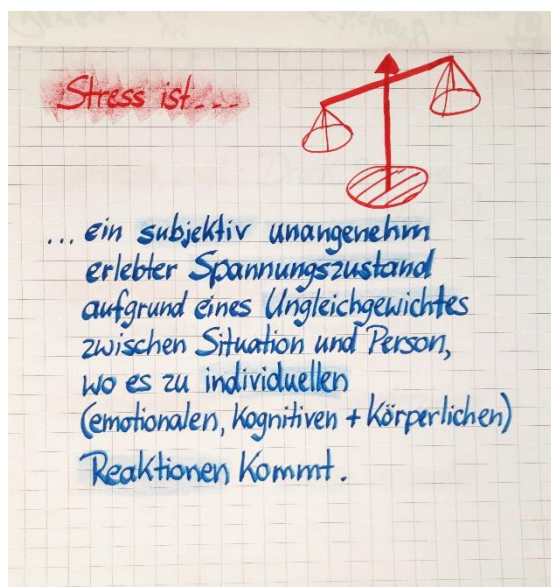 Stress ist...
... ein subjektiv unangenehm
erlebter Spannungszustand
aufgrund eines Ungleichgewichtes
zwischen Situation und Person,
wo es zu individuellen
(emotionalen, Kognitiven + Körperlichen)
Reaktionen Kommt.